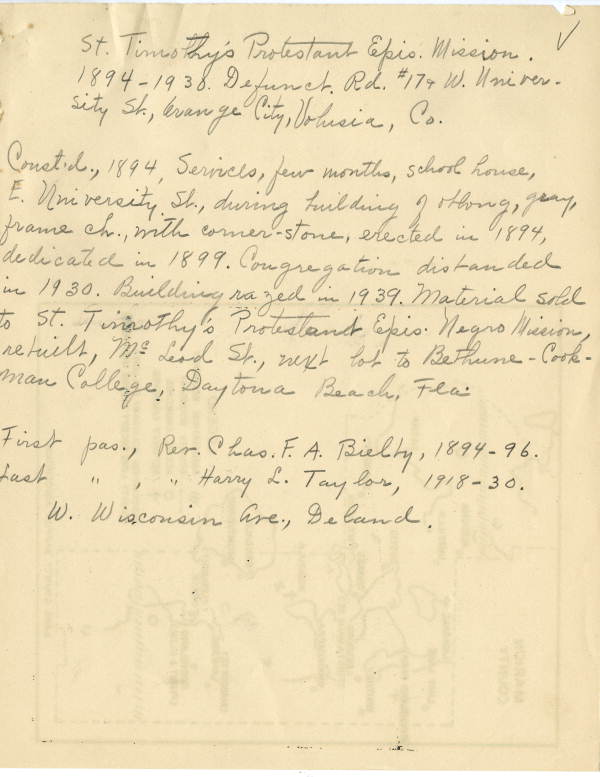 St. Timothy's Protestant Epis. Mission.
1894-1930. Defunct. Rd. #17+ W. Univer-
sity St., Orange City, Volusia, Co.
Const.d., 1894, Services, few months, school house,
E. University St., during building of oblong, gray,
frame ch., with corner-stone, erected in 1894,
dedicated in 1899. Congregation disbanded
in 1930. Building razed in 1939. Material sold
to St. Timothy's Protestant Epis. Negro Mission,
rebuilt, Mc Leod St., next lot to Bethune-Cook-
man College, Daytona Beach, Fla.
First pas., Rev. Chas. F. A. Bielby, 1894-96.
Last " , " Harry L. Taylor, 1918-30.
W. Wisconsin Ave., Deland.